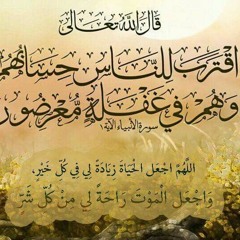 قَالَ اللَّهُ تَعَالَى
اقْتَرَبَ لِلنَّاسِ حِسَابُهُمْ
وَهُمْ فِي غَفْلَةٍ مُّعْرِضُونَ
سورة الأنبياء الآية ١
اللَّهُمَّ اجْعَلِ الْحَيَاةَ زِيَادَةً لِي فِي كُلِّ خَيْرٍ،
وَاجْعَلِ الْمَوْتَ رَاحَةً لِي مِنْ كُلِّ شَرٍّ